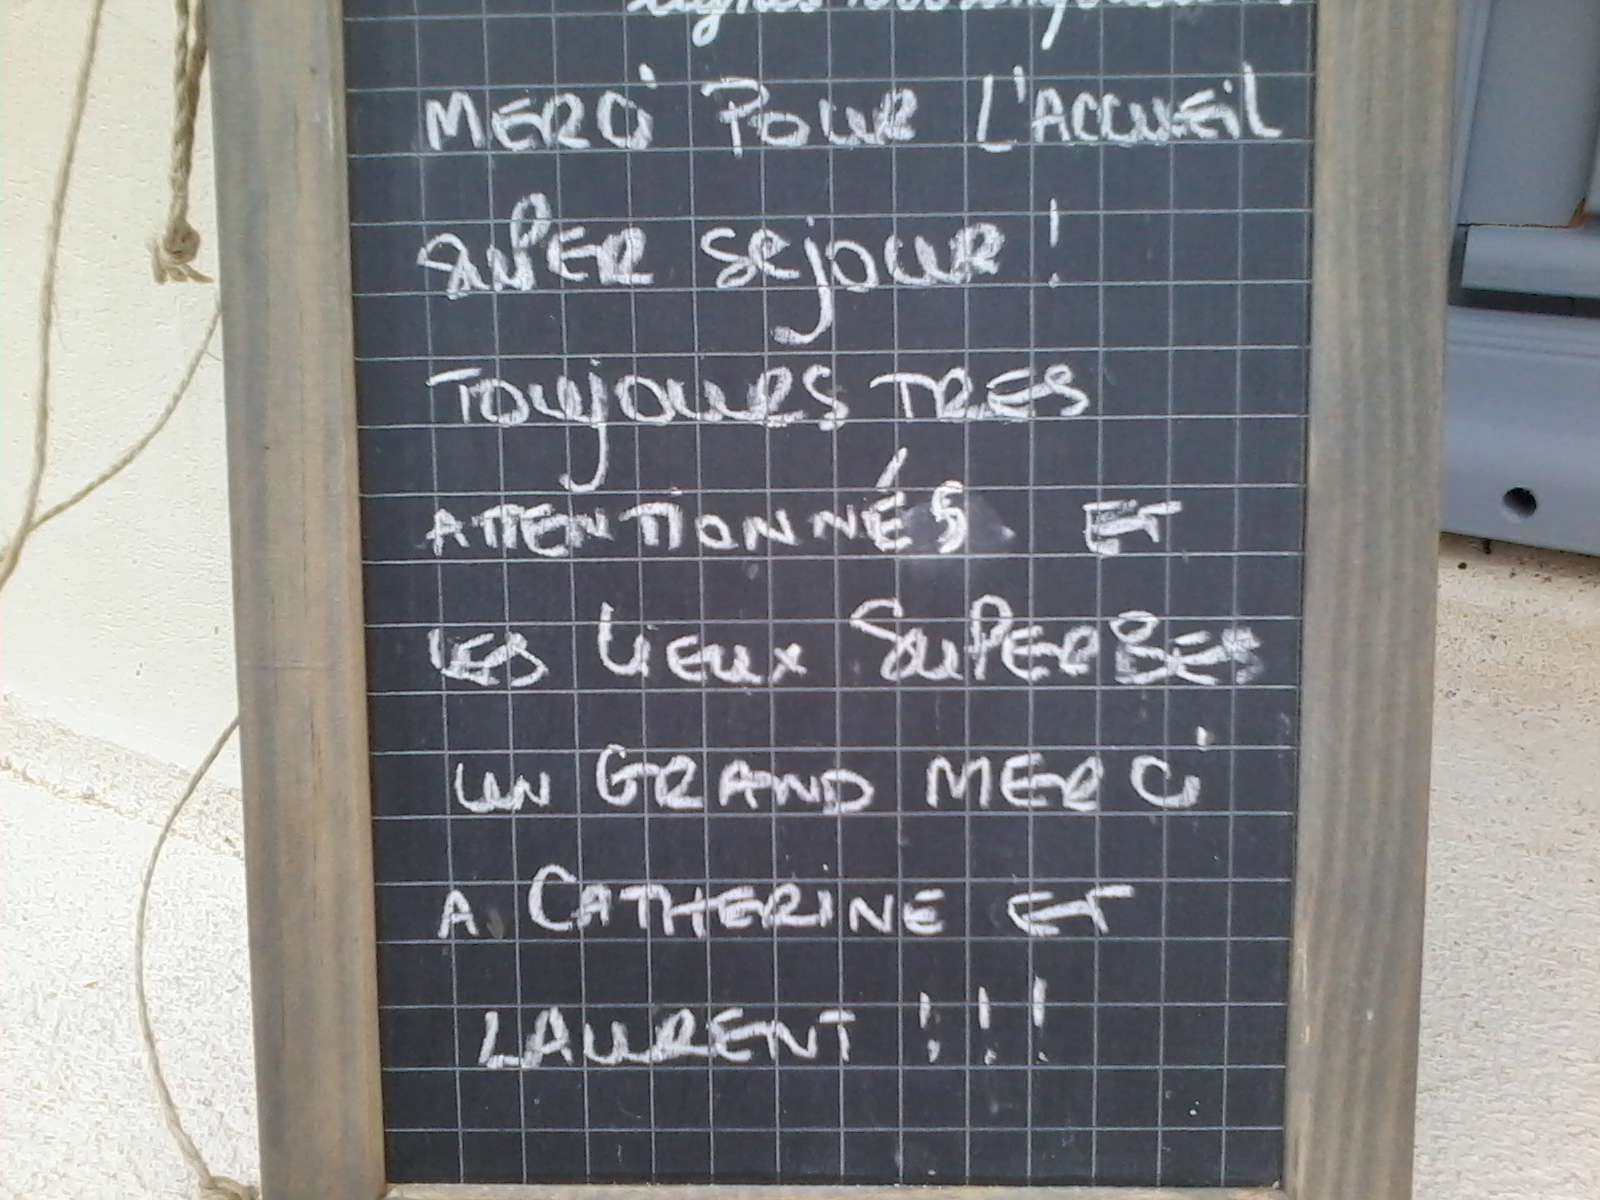 MERCi POUR L'ACCUEiL
SUPER SEjOUR !
TOUjOURS TRES
ATTENTIONNÉS ET
LES LIEUX SUPERBES
UN GRAND MERCi
A CATHERINE ET
LAURENT !!!